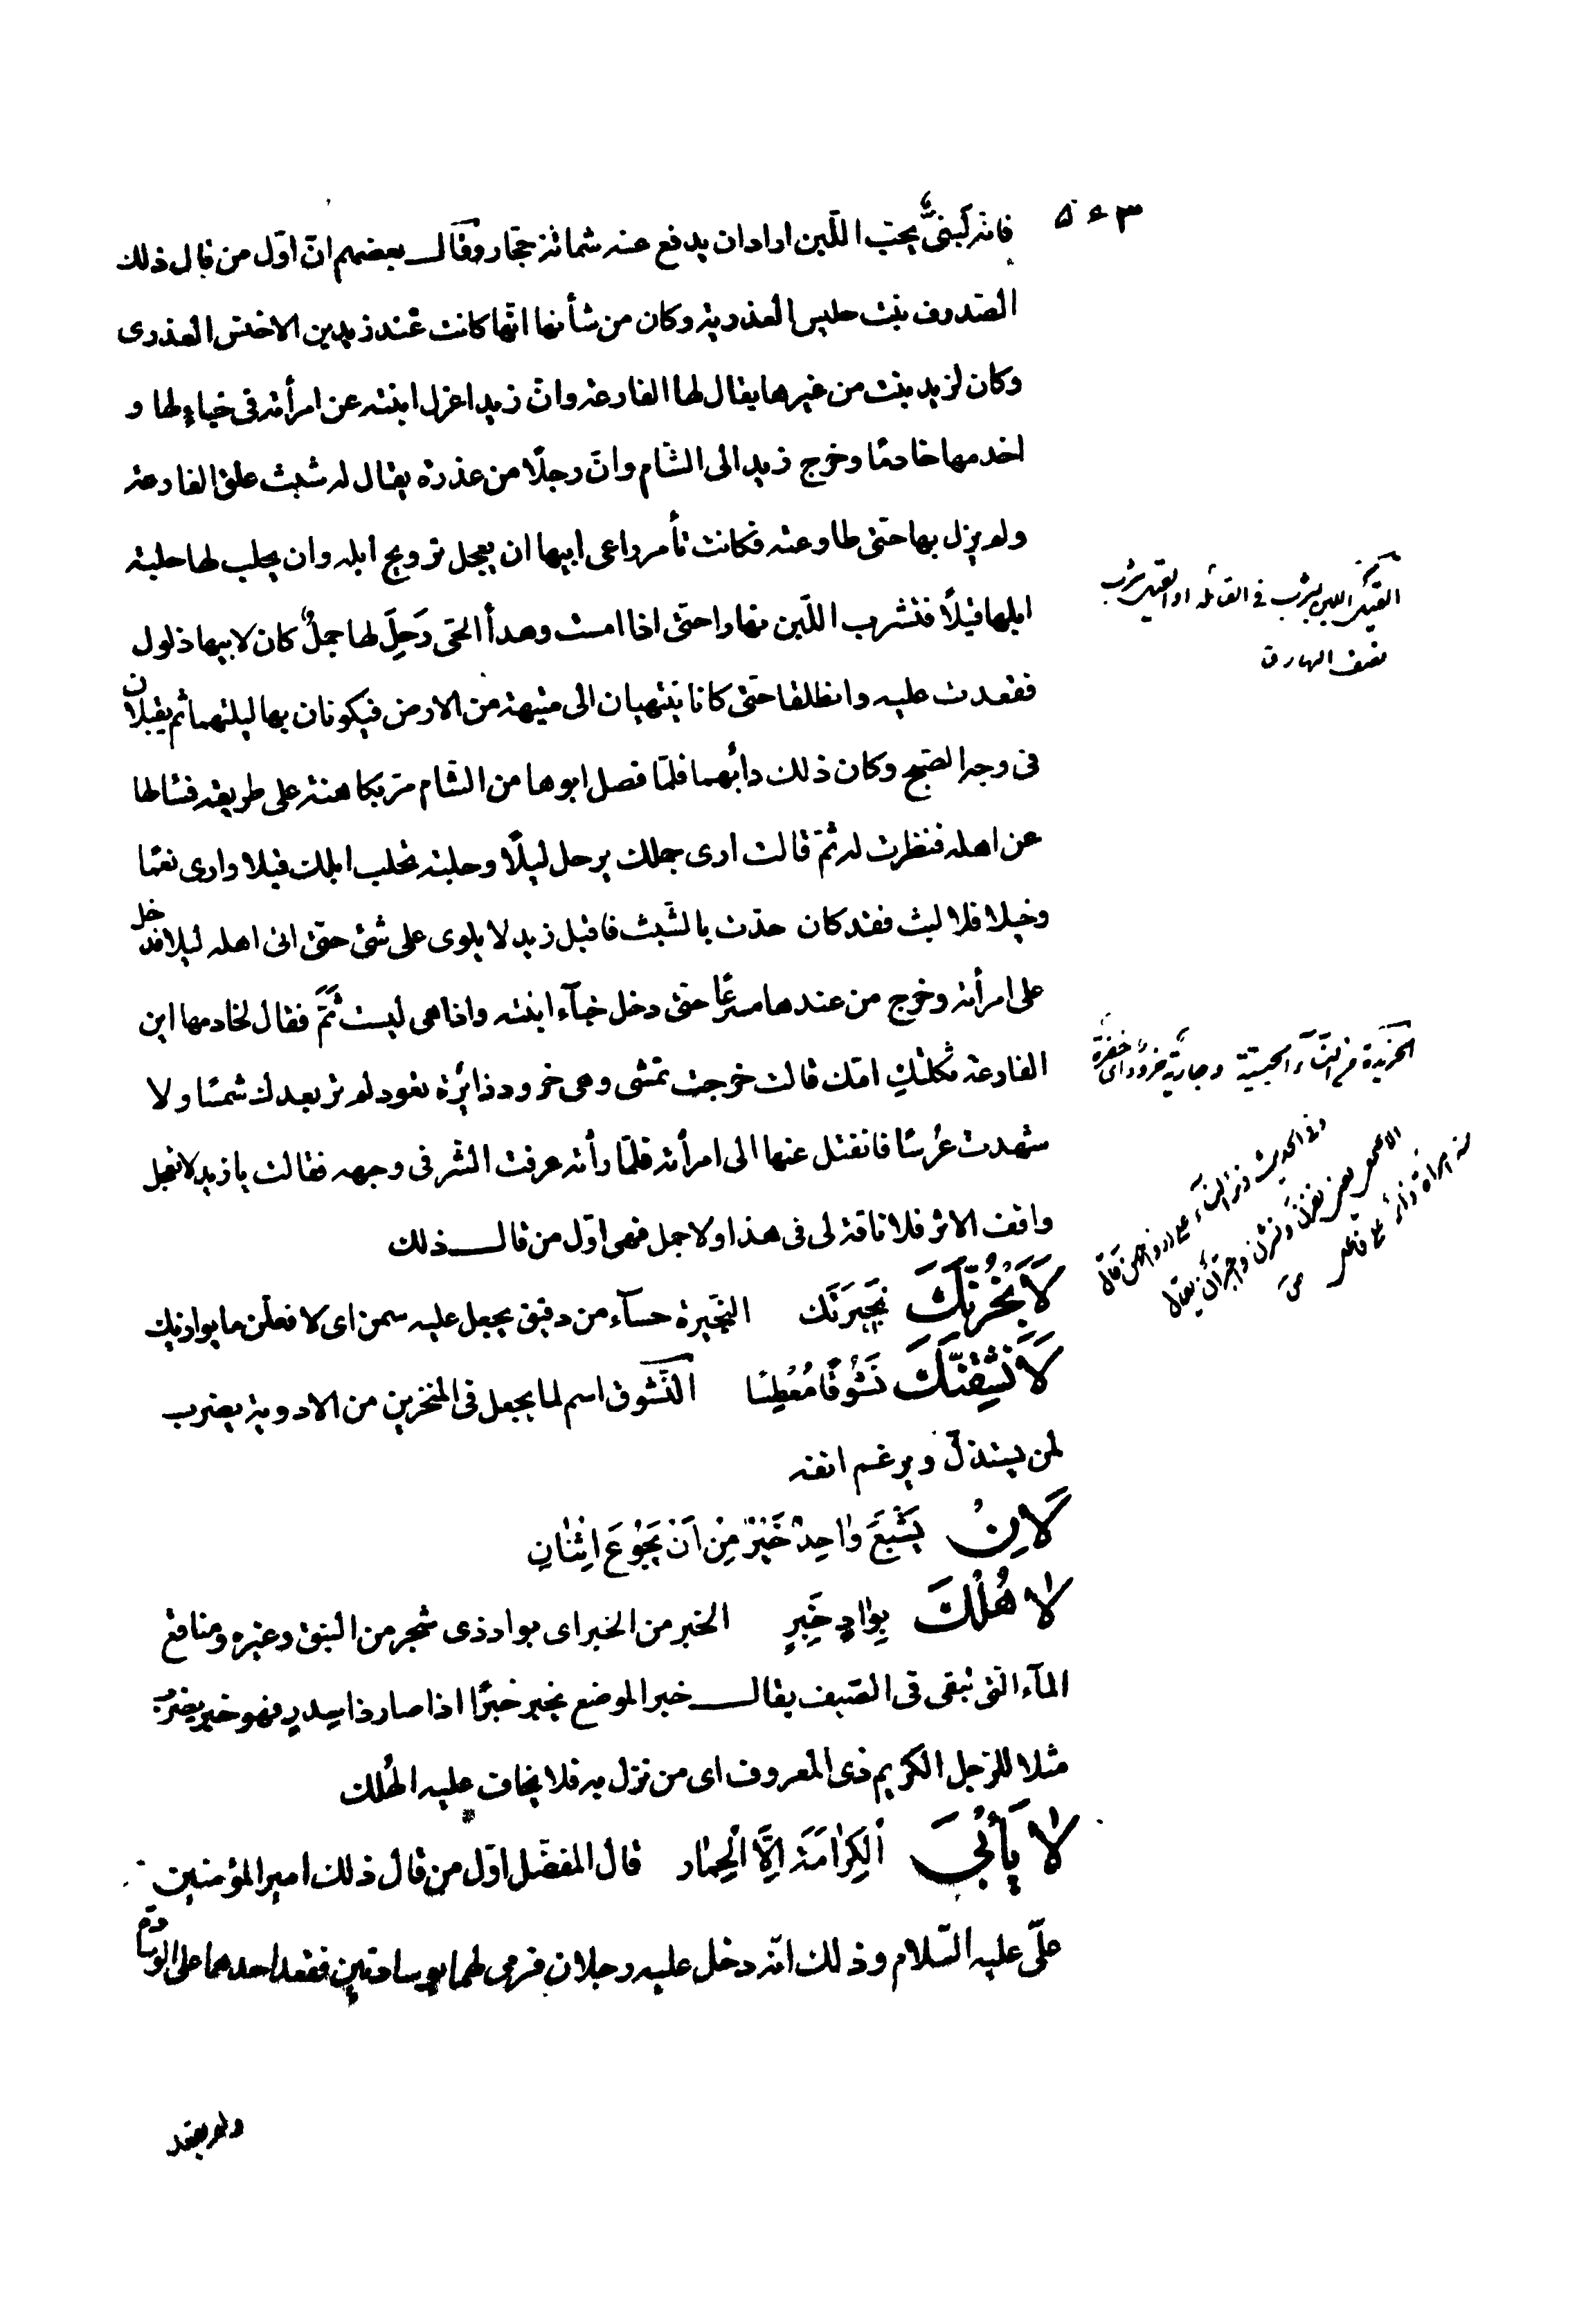 ۵۴۳
فانّه لبنىٌّ يحبّ اللّبن اراد ان يدفع عنه شماتة حجّار وقال بعضهم انّ اوّل من قال ذلك
الصّدوف بنت حليس العذريّة وكان من شأنها انّها كانت عند زيد بن الاخنس العذرى
وكان لزيد بنت من غيرها يقال لها الفارعة وانّ زيدا عزل ابنته عن امرأته فى خباءٍ لها و
اخدمها خادمًا وخرج زيد الى الشّام وانّ رجلًا من عذرة يقال له شبث علق الفارعة
ولم يزل بها حتّى طاوعته فكانت تأمر راعى ابيها ان يعجل ترويح ابله وان يحلب لها حلبة
ابلها قيلًا فتشرب اللّبن نهارا حتّى اذا امست وهدأ الحىّ رَحِلَ لها جملٌ كان لابيها ذلول
فقعدت عليه وانطلقا حتّى كانا ينتهيان الى متيهة من الارض فيكونان بها ليلتهما ثم يقبلان
فى وجه الصّبح وكان ذلك دأبهما فلمّا فصل ابوها من الشّام مرّ بكاهنة على طريقه فسالها
عن اهله فنظرت له ثمّ قالت ارى جملك يرحل ليلًا وحلبة تحلب ابلك قيلا وارى نعمًا
وخيلا فلا لبث فقد كان حدث بالشّبث فاقبل زيد لا يلوى على شئ حتّى اتى اهله ليلا فدخل
على امرأته وخرج من عندها مسرعًا حتّى دخل خبآء ابنته واذا هى ليست ثَمَّ فقال لخادمها اين
الفارعة ثكلتكِ امّك قالت خرجت تمشى وهى خرود زائرة تعود لم تر بعدك شمسًا ولا
شهدت عُرسًا فانفتل عنها الى امرأته فلمّا رأته عرفت الشّر فى وجهه فقالت يا زيد لا تعجل
واقف الاثر فلا ناقة لى فى هذا ولا جمل فهى اوّل من قال ذلك
لَاَنْجُرَنَّكَ نَجِيرَتَكَ النّجيرة حسآء من دقيق يجعل عليه سمن اى لافعلن ما يوازيك
لَاَنْشِقَنَّكَ نَشُوقًا مُعْطِسًا النَّشوق اسم لما يجعل فى المنخرين من الادوية يضرب
لمن يستذلّ ويرغم انفه
لَاِنْ يَشْبَعَ وٰاحِدٌ خَيْرٌ مِنْ اَنْ يَجُوْعَ اثْنٰانِ
لا هُلْكَ بِوٰادٍ خَبِرٍ الخبر من الخبر اى بواد ذى شجر من النبق وغيره ومناقع
المآء الّتى تبقى فى الصّيف يقال خبر الموضع يخبر خبرًا اذا صار ذا سِدرٍ فهو خبر يضرب
مثلا للرّجل الكريم ذى المعروف اى من نزل به فلا يخاف عليه الهُلك
لا يَأْبىَ الْكِرٰامَةَ اِلَّا الْحِمٰار قال المفضّل اوّل من قال ذلك امير المؤمنين
علىّ عليه السّلام وذلك انّه دخل عليه رجلان فرمى لهما بوسادتين فقعد احدهما على الوسادة
ولم يقعد
القَيْل اللبن يشرب فى القائلة او القيل شرب
نصف النهار ق
الخريدة من النسآء الحييّة وجارية خرود اى خفرة